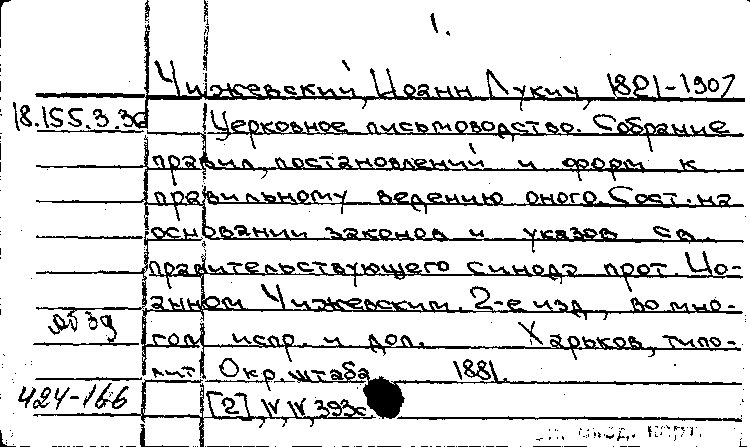 1.
Чижевский, Иоанн Лукич, 1821-1907
18.155.3.36 Церковное письмоводство. Собрание
правил, постановлений и форм к
правильному ведению оного. Сост. на
основании законов и указов св.
правительствующего синода прот. Ио-
анном Чижевским. 2-е изд., во мно-
гом испр. и доп. Харьков, типо-
лит. Окр. штаба 1881.
424-166 [2], IV, IV, 393с